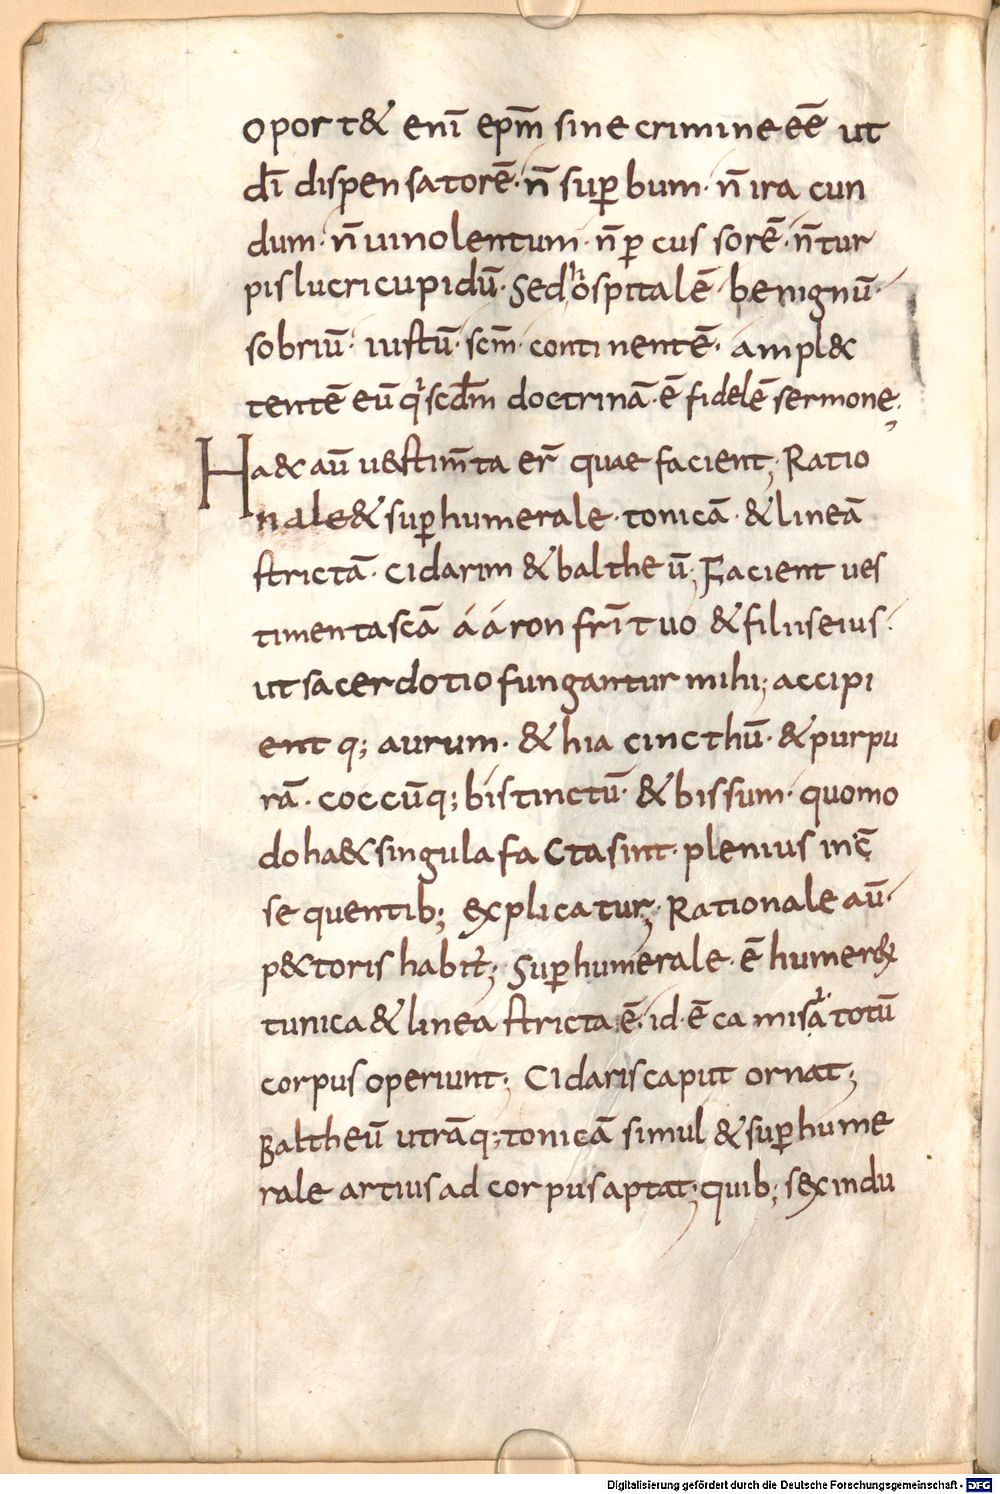 oport& eni͞ ep͞m sine crimine e͞e ut
d͞i dispensatore͞· n͞ sup̱bum· n͞ iracun
dum· n͞ uinolentum· n͞ p̱cussore͞· n͞ tur
pis lucri cupidu͞· Sed hospitale͞ benignu͞·
sobriu͞· iustu͞· sc͞m· continente͞· ampl&c
tente͞ eu͞ qⁱ scd͞m doctrina͞· e͞ fidele͞ sermone;
Ha&c au͞ u&stim͞ta er͞ quae facient; Ratio
nale & sup̱humerale· tonica͞· & linea͞
stricta͞· cidarim & baltheu͞; Facient ues
timenta sca͞ ááron fr͞i tuo & filiis eius·
ut sacerdotio fungantur mihi; accipi
entq; aurum· & hiacincthu͞· & purpu
ra͞· coccu͞q; bistinctu͞· & bissum· quomo
do ha&c singula facta sint· plenius in c͞
sequentib; explicatur; Rationale au͞·
p&ctoris habit᷑; Sup̱humerale· e͞ humer&
tunica & linea stricta· e͞· id· e͞ camisa᷑ totu͞
corpus operiunt; Cidaris caput ornat;
Baltheu͞ utra͞q; tonica͞ simul & sup̱hume
rale artius ad corpus aptat; quib; sex indu
Digitalisierung gefördert durch die Deutsche Forschungsgemeinschaft - DFG